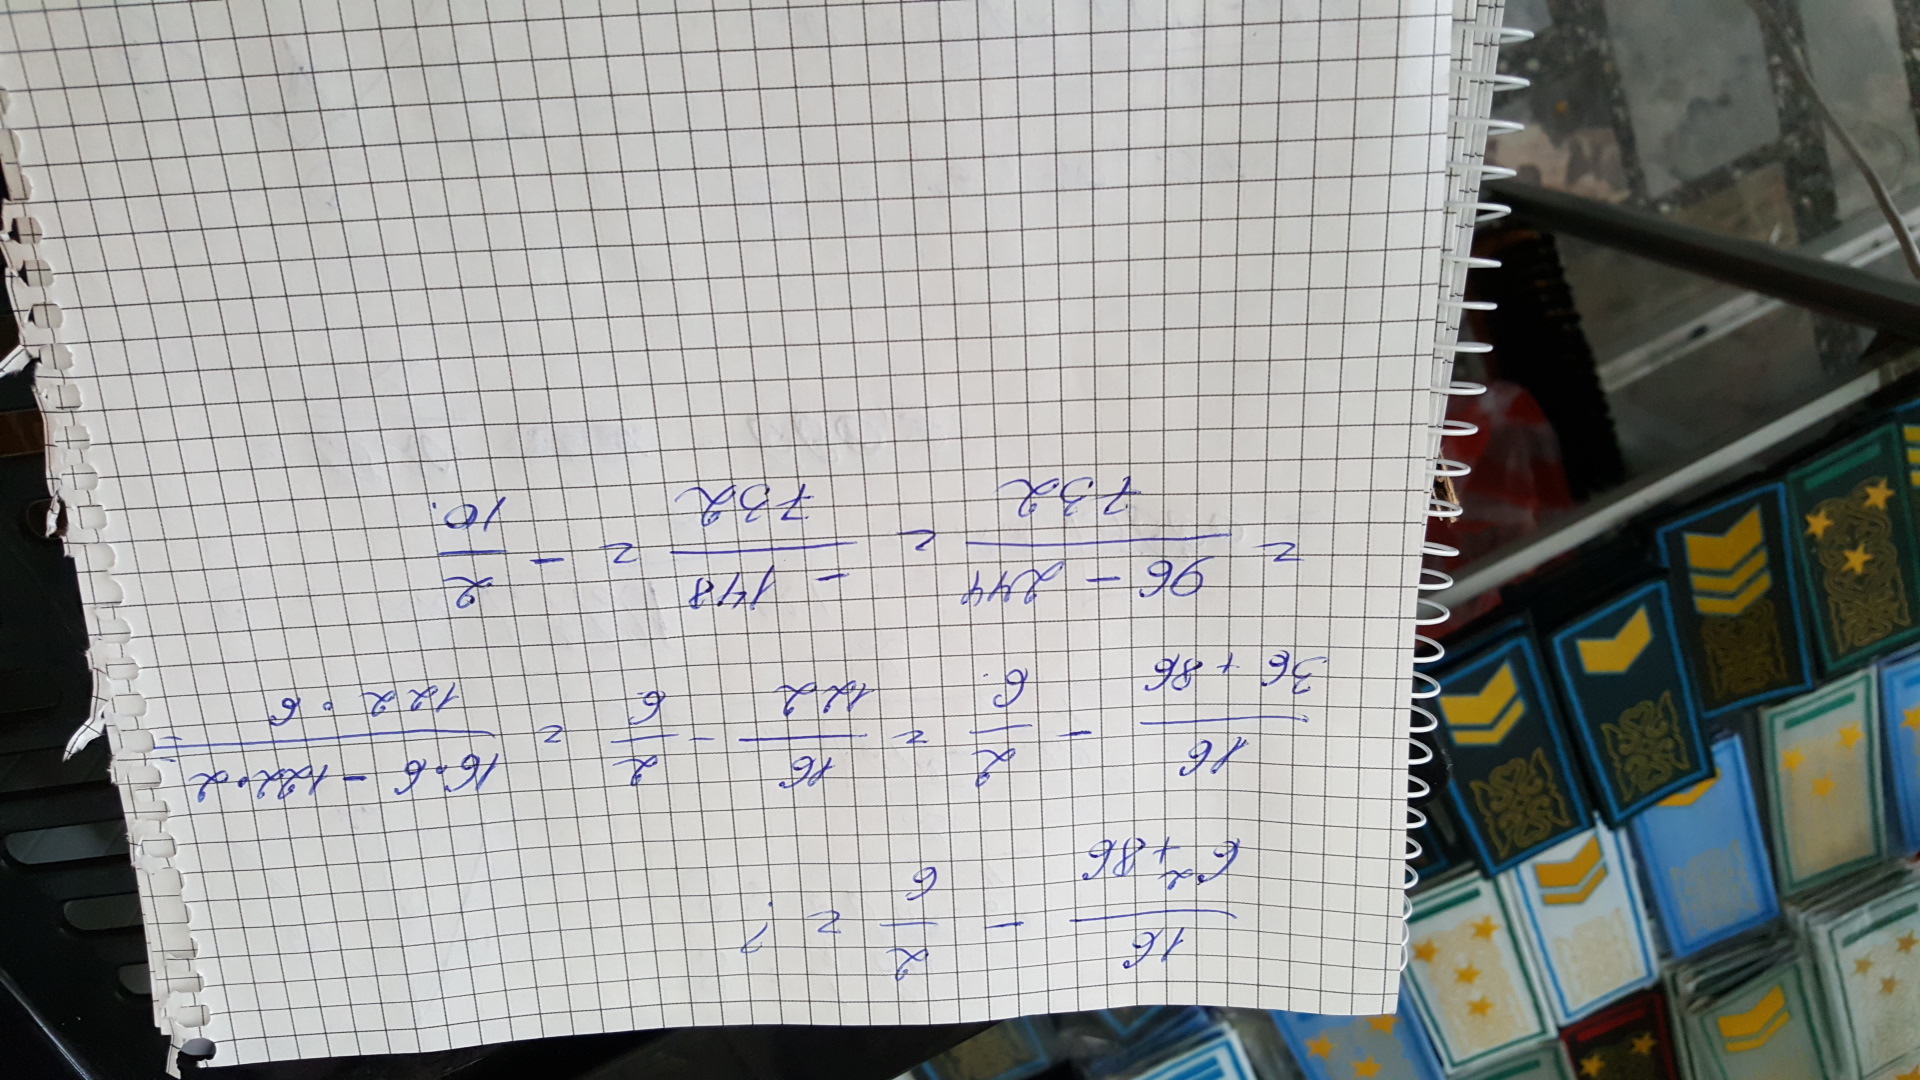 16/(6²+86) - 2/6 = ?
16/(36+86) - 2/6 = 16/122 - 2/6 = (16·6 - 122·2)/(122·6) =
= (96 - 244)/732 = -148/732 = -2/10.